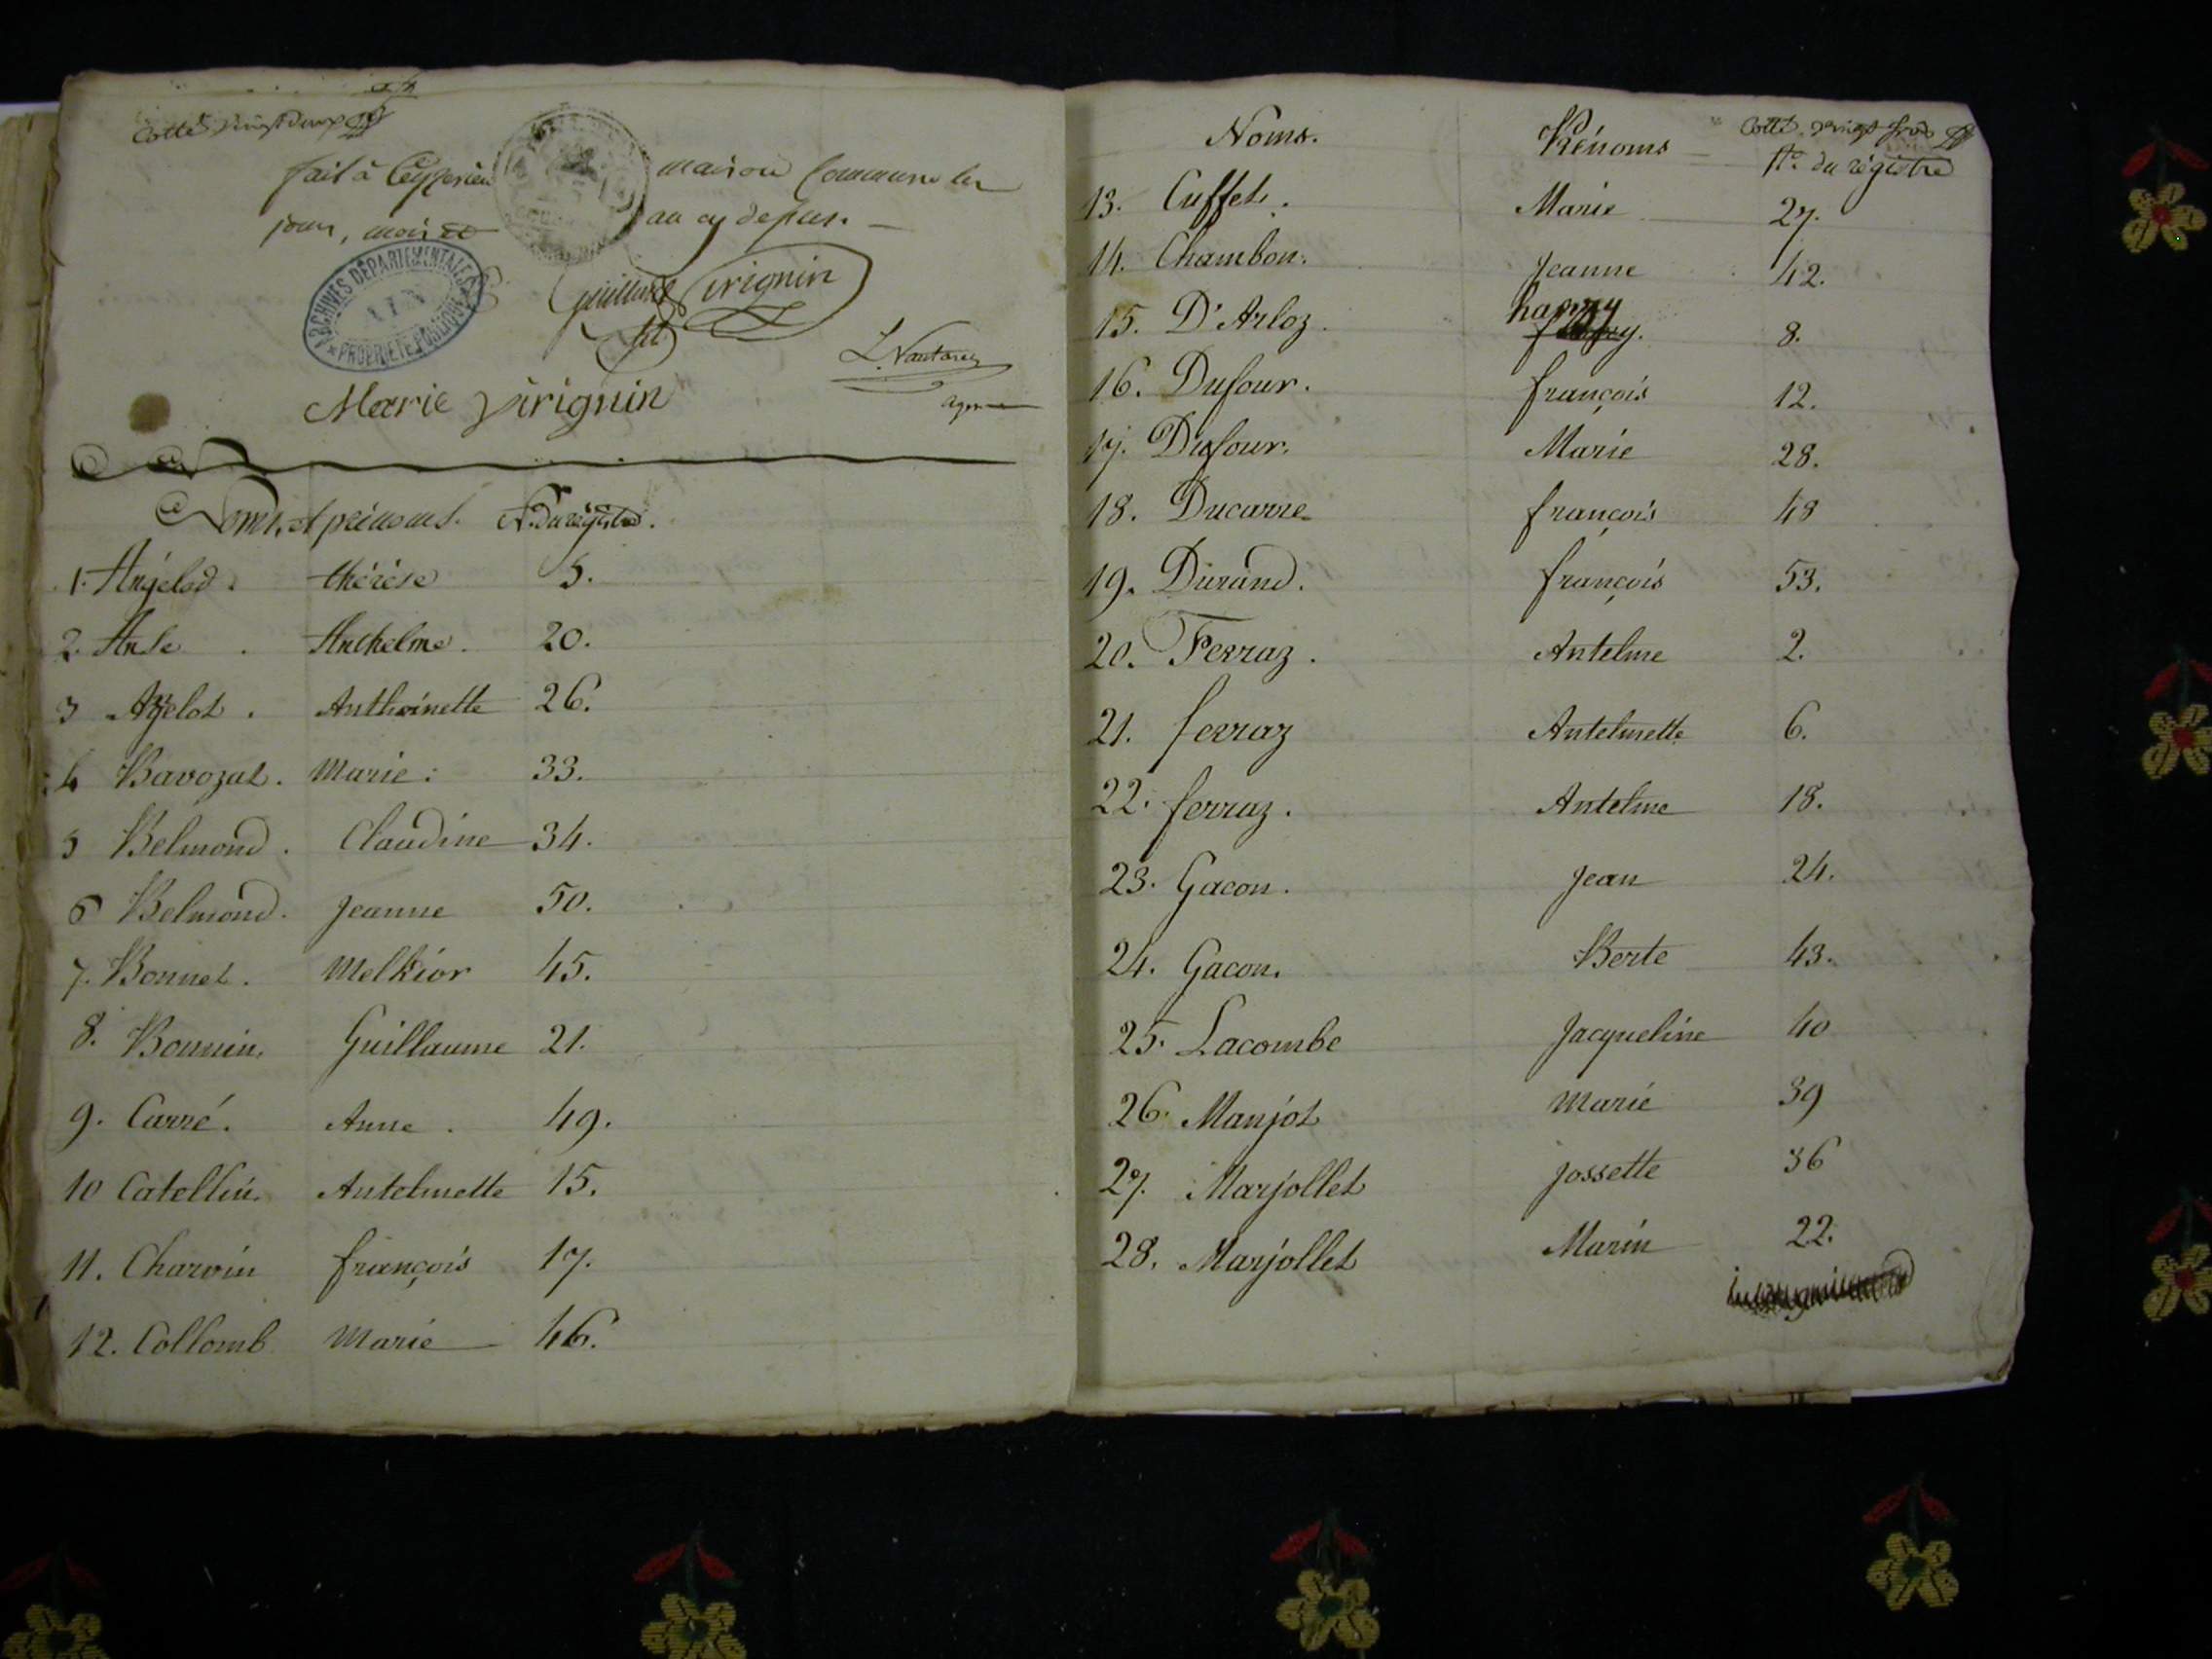 Cotté vingt deux
fait à Ceyzerieu maison Commune les
jour, mois et an cy dessus.
ARCHIVES DÉPARTEMENTALES
AIN
PROPRIÉTÉ PUBLIQUE
Virignin
Marie Virignin
Noms et prénoms. N. du régistre.
1. Angelod. thérèse 5.
2. Anse. Anthelme. 20.
3 Azelot. Anthoinette 26.
4 Bavozat. Marie: 33.
5 Belmond. Claudine 34.
6 Belmond. Jeanne 50.
7. Bonnet. Melkior 45.
8. Bonnin. Guillaume 21.
9. Carré. Anne. 49.
10 Catellin. Antelmette 15.
11. Charvin françois 17.
12. Collomb Marie 46.
Cotté vingt trois
Noms. Prénoms N.o du régistre
13. Cuffet. Marie 27.
14. Chambon. Jeanne 42.
15. D'Arloz. 8.
16. Dufour. françois 12.
17. Dufour. Marie 28.
18. Ducarre françois 48
19. Durand. françois 53.
20. Ferraz. Antelme 2.
21. ferraz Antelmette 6.
22. ferraz. Antelme 18.
23. Gacon. Jean 24.
24. Gacon. Berte 43.
25. Lacombe Jacqueline 40
26. Manjot Marie 39
27. Marjollet Jossette 36
28. Marjollet Marin 22.